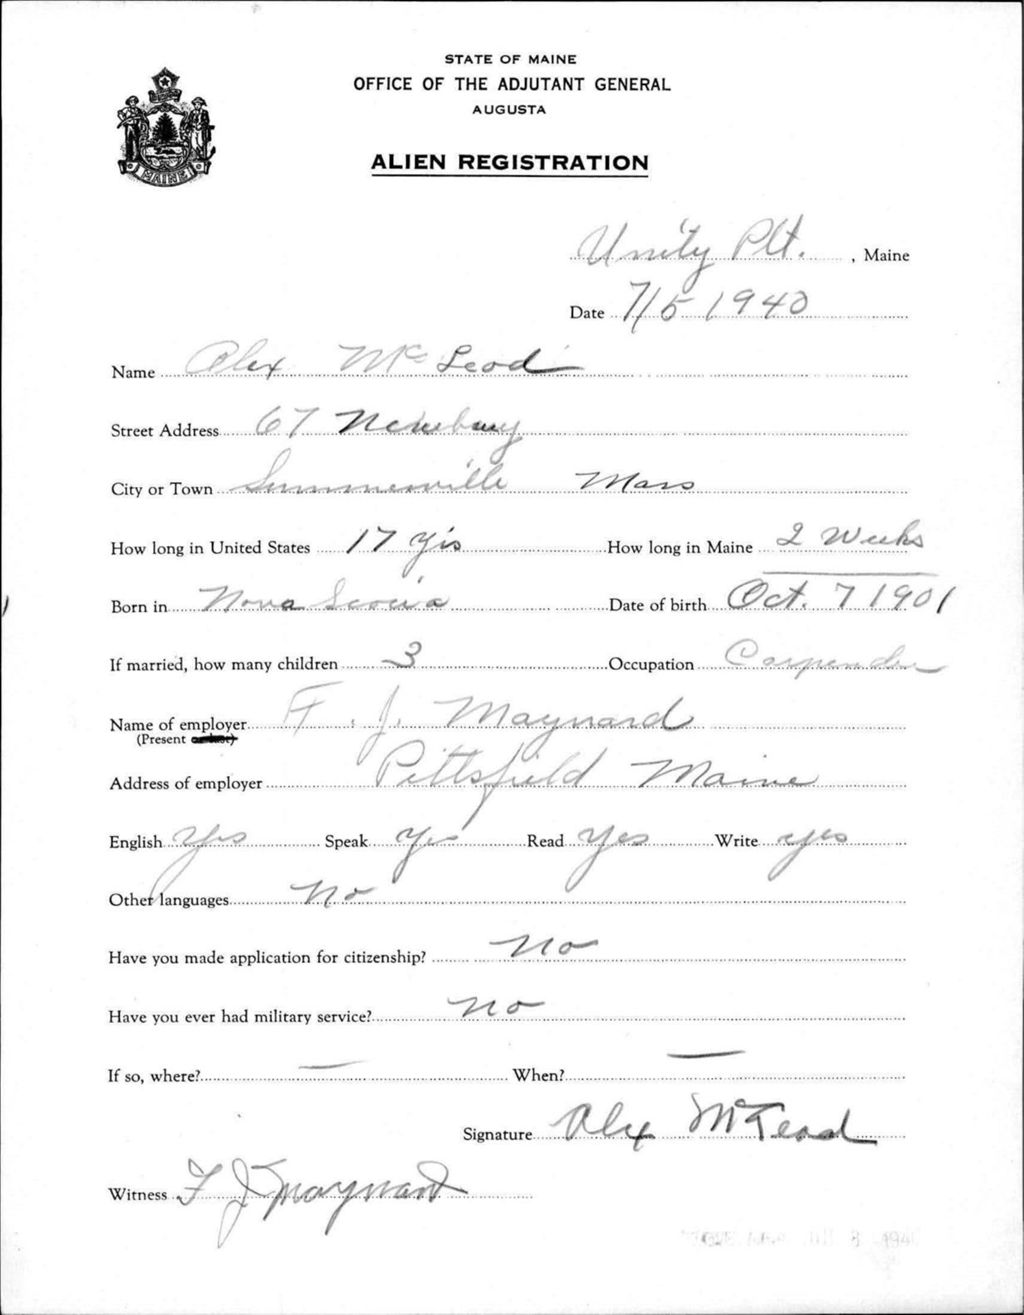 STATE OF MAINE
OFFICE OF THE ADJUTANT GENERAL
AUGUSTA
ALIEN REGISTRATION
MAINE
Unity Plt. , Maine
Date 7/5 1940
Name Alex McLeod
Street Address 67 Newbury
City or Town Summerville Mass
How long in United States 17 yrs How long in Maine 2 Weeks
Born in Nova Scotia Date of birth Oct. 7 1901
If married, how many children 3 Occupation Carpender
Name of employer F. J. Maynard
(Present
Address of employer Pittsfield Maine
English Yes Speak Yes Read Yes Write yes
Other languages No
Have you made application for citizenship? No
Have you ever had military service? no
If so, where? — When? —
Signature Alex McLeod
Witness F J Maynard